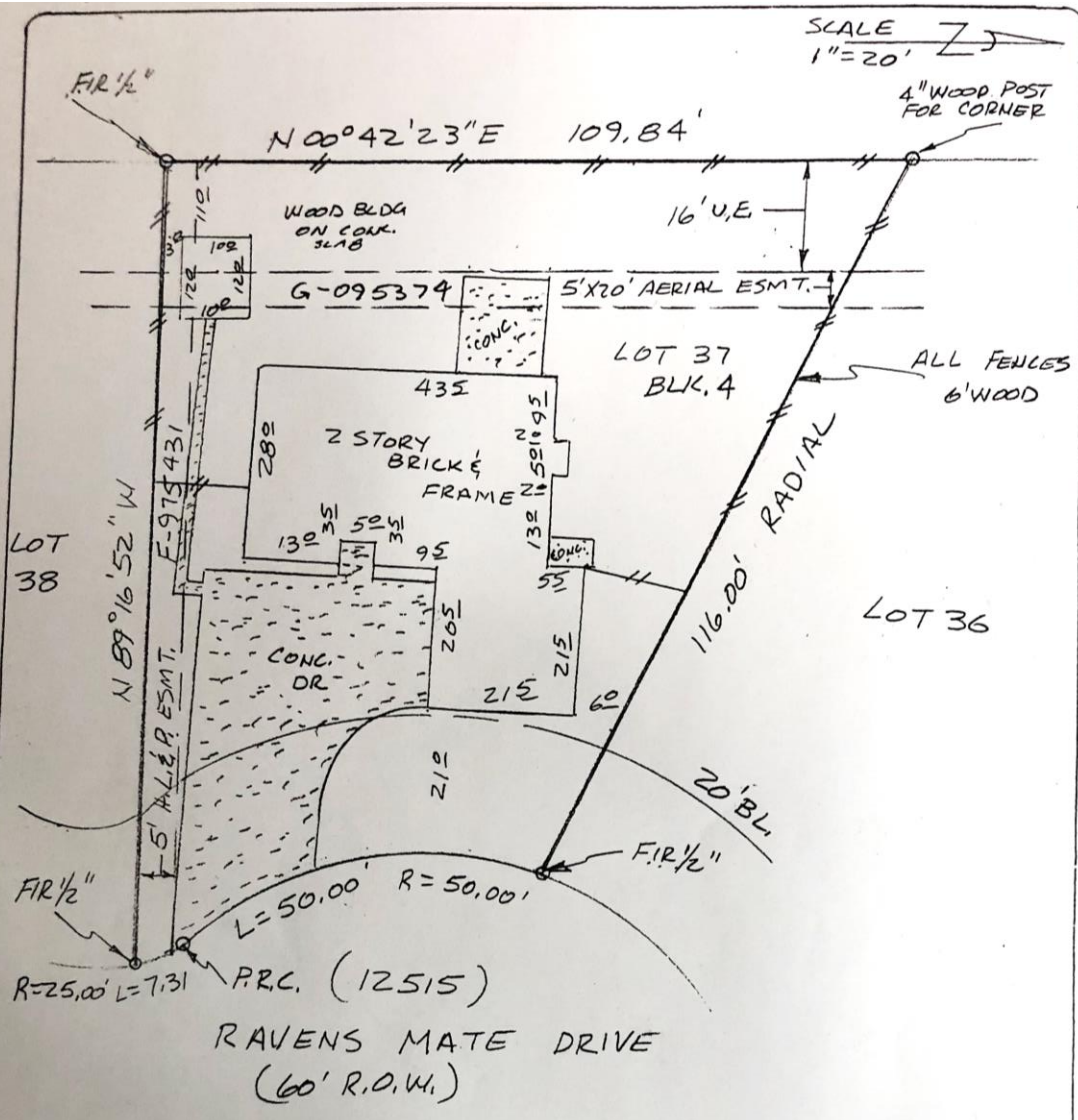 SCALE
1"=20'
Z
F.I.R. 1/2"
4" WOOD POST
FOR CORNER
N 00°42'23" E 109.84'
11.0
WOOD BLDG
ON CONC.
SLAB
16' U.E.
10.0
12.0
12.0
10.0
G-095374
5'X20' AERIAL ESMT.
CONC.
LOT 37
BLK. 4
ALL FENCES
6' WOOD
43.5
9.5
28.0
2 STORY
BRICK &
FRAME
5.0
13.0
13.0
3.5
5.0
3.5
9.5
CONC.
5.5
F-975431
LOT
38
N 89°16'52" W
116.00' RADIAL
LOT 36
20.5
21.5
CONC.
DR
21.5
6.0
5' H.L.&P. ESMT.
21.0
20' BL.
F.I.R. 1/2"
F.I.R. 1/2"
L=50.00' R=50.00'
R=25.00' L=7.31
P.R.C. (12515)
RAVENS MATE DRIVE
(60' R.O.W.)